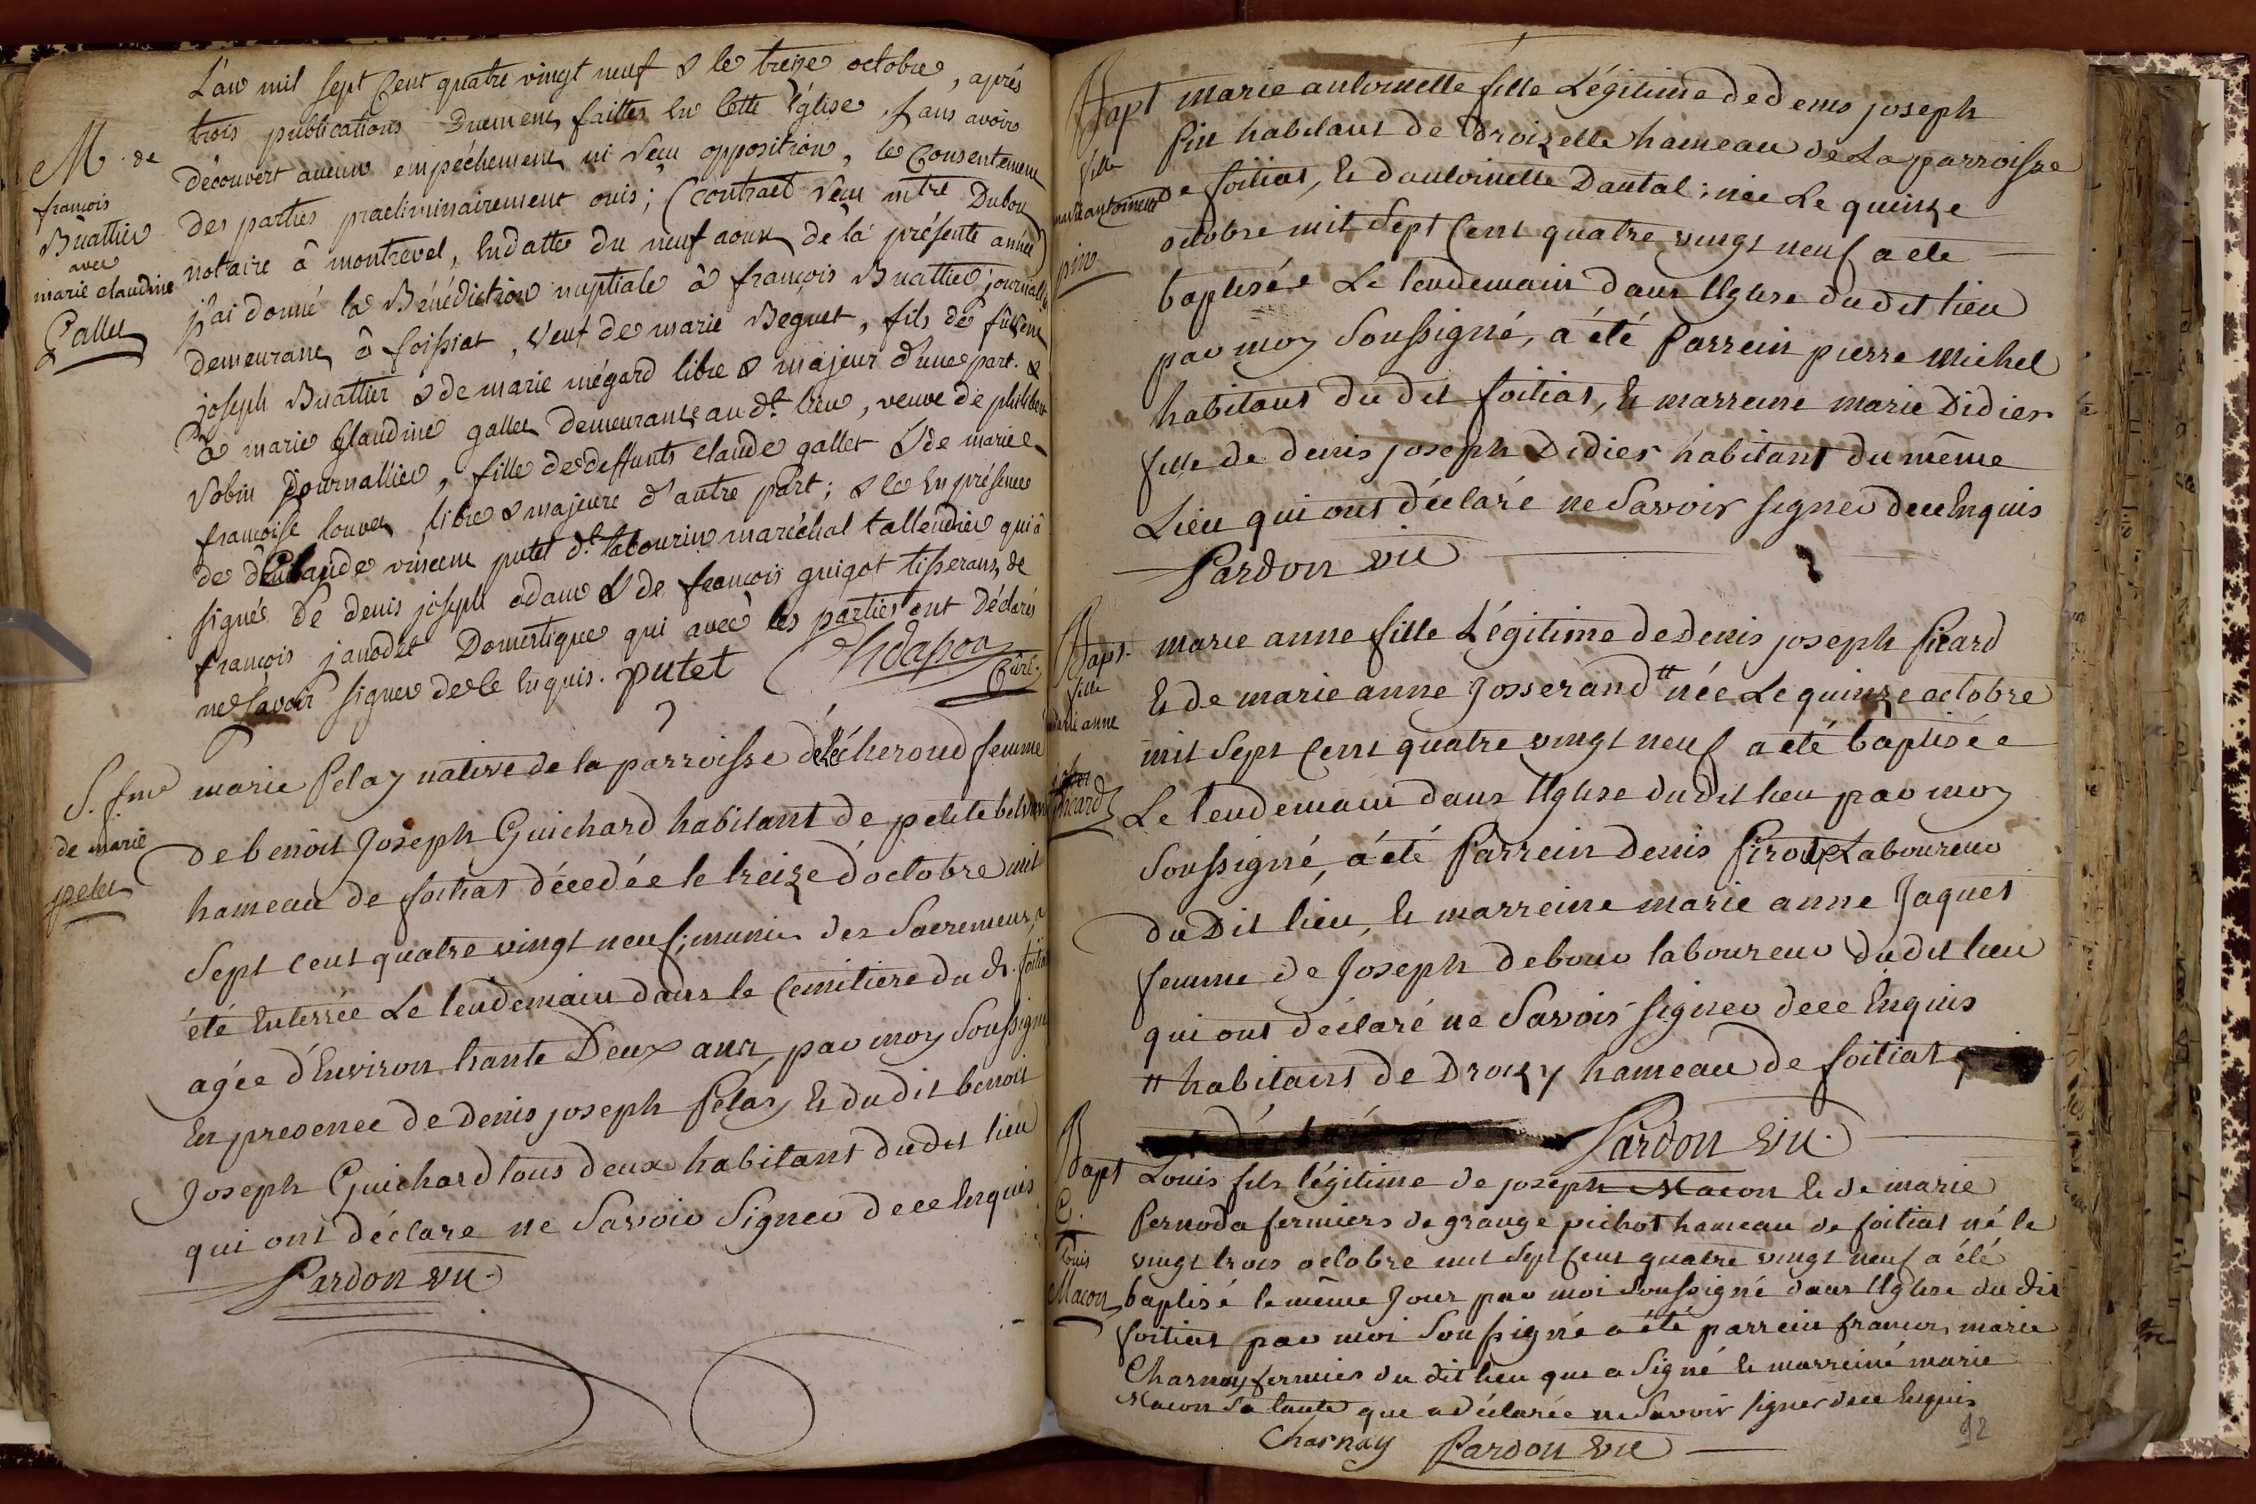 L'an mil sept Cent quatre vingt neuf & le treize octobre, après
trois publications Duement faittes en cette église, sans avoir
découvert aucun empéchement ni reçu opposition, le Consentement
des parties praeliminairement ouis; (contract reçu mtre Dubou
notaire â montrevel, en datte du neuf aoux de la présente année)
j'ai donné la Bénédiction nuptiale â françois Buattier journallier
demeurant â foissiat, veuf de marie Beguet, fils de
joseph Buattier & de marie mégard libre & majeur d'une part. &
â marie Claudine gallet demeurante au dt. lieu, veuve de philibert
robin journallier, fille de deffunts claude gallet & de marie
françoise louvet libre & majeure d'autre part; & ce en présence
de Claude vincent putet dt. labourin maréchal tallendier qui â
signé de denis joseph adam & de françois guigot tisserans, de
françois janodet Domestique qui avec les parties ont Déclarés
ne savoir signer de ce enquis. putet Curé
M. de
françois
Buattier
avec
marie claudine
Gallet
marie Pelay native de la parroisse d'étcheroud femme
de benoit Joseph Guichard habitant de petite
hameau de foitiat décédée le treize d'octobre mil
Sept cent quatre vingt neuf; munie des Sacremens, a
été Enterrée Le lendemain dans le Cemitiere du dt. foitiat
agée d'Environ trante Deux ans, par moy Soussigné
En presence de Denis joseph Pelay, & du dit benoit
Joseph Guichard tous deux habitans dudit lieu
qui ont déclare ne Savoir Signer de ce Enquis
Pardon vic.
S. fme
de marie
pelet
marie antoinette fille Légitime de denis joseph
Pin habitant de Broizelle hameau de La parroisse
de foitiat, & d'antoinette Dantal; née Le quinze
octobre mil Sept Cent quatre vingt neuf a ete
baptisée Le lendemain dans l'Eglise du dit lieu
par moy Soussigné, a été Parrein pierre Michel
habitans du dit foitiat, & marreine marie Didier
fille de denis joseph Didier habitant du même
Lieu qui ont déclaré ne Savoir signer de ce Enquis
Pardon vic
Bapt
fille
marie antoinette
pin
marie anne fille Légitime de Denis joseph Picard
& de marie anne Josserand # née Le quinze octobre
mil Sept Cent quatre vingt neuf a été baptisée
Le lendemain dans l'Eglise du dit lieu par moy
Soussigné, a été Parrein Denis Piroux Laboureur
du Dit lieu, & marreine marie anne Jaquet
femme de Joseph debour laboureur du dit lieu
qui ont déclaré ne Savoir signer de ce Enquis
# habitans de Drouzy hameau de foitiat
Pardon vic.
Bapt.
fille
marie anne
picard
Louis fils légitime de joseph Macon & de marie
Pernoda fermiers de grange pichot hameau de foitiat né le
vingt trois octobre mil Sept Cent quatre vingt neuf a été
baptisé le même Jour par moi Soussigné dans l'Eglise du dit
foitiat par moi Soussigné a été parrein françois marie
Charnay fermier du dit lieu que a Signé & marreine marie
Macon Sa tante que a déclarée ne Savoir signer de ce Enquis
Charnay Pardon vic
Bapt
G.
Louis
Macon
92